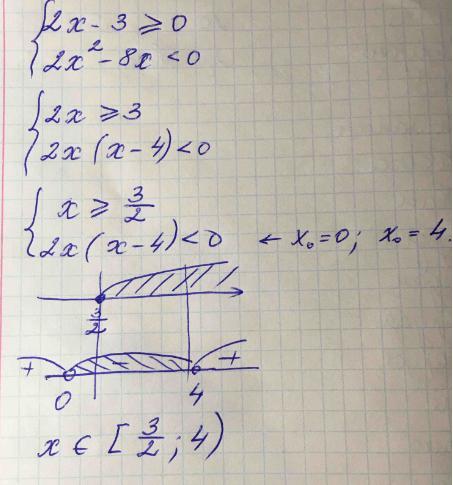 2x - 3 ≥ 0
2x² - 8x < 0
2x ≥ 3
2x (x - 4) < 0
x ≥ 3/2
2x (x - 4) < 0 ← x₀ = 0; x₀ = 4.
3/2
+ - +
0 4
x ∈ [3/2; 4)